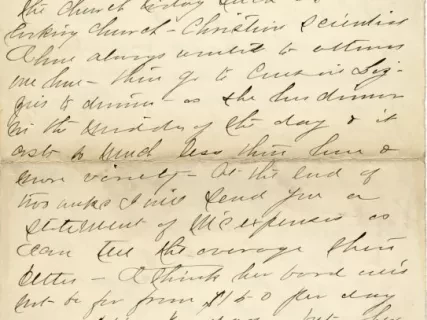 the Church today
looking Church - Christian Scientist
I have always wanted to attend
one here - then go to Cousin Liz-
zie's to dinner - as she has dinner
in the middle of the day & it
costs so much less than here &
more variety - At the end of
two weeks I will send you a
statement of expenses as
can tell the average then
better - I think her board will
not be far from $16.0 per day